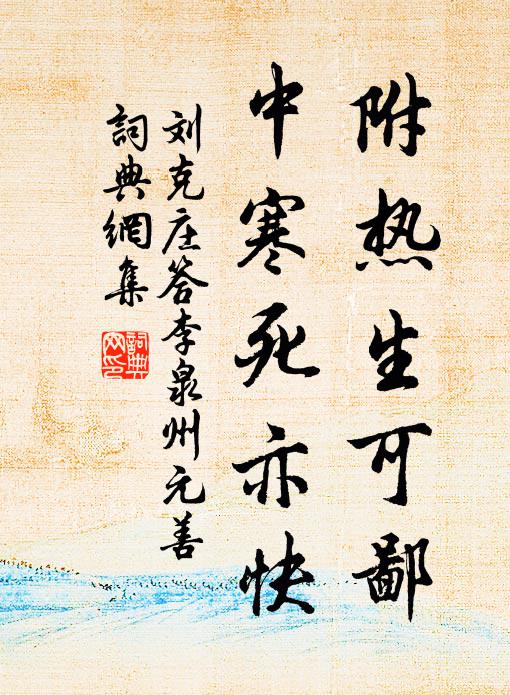 附热生可鄙
中寒死亦快
刘克庄答李泉州元善
詞典網集
詞典